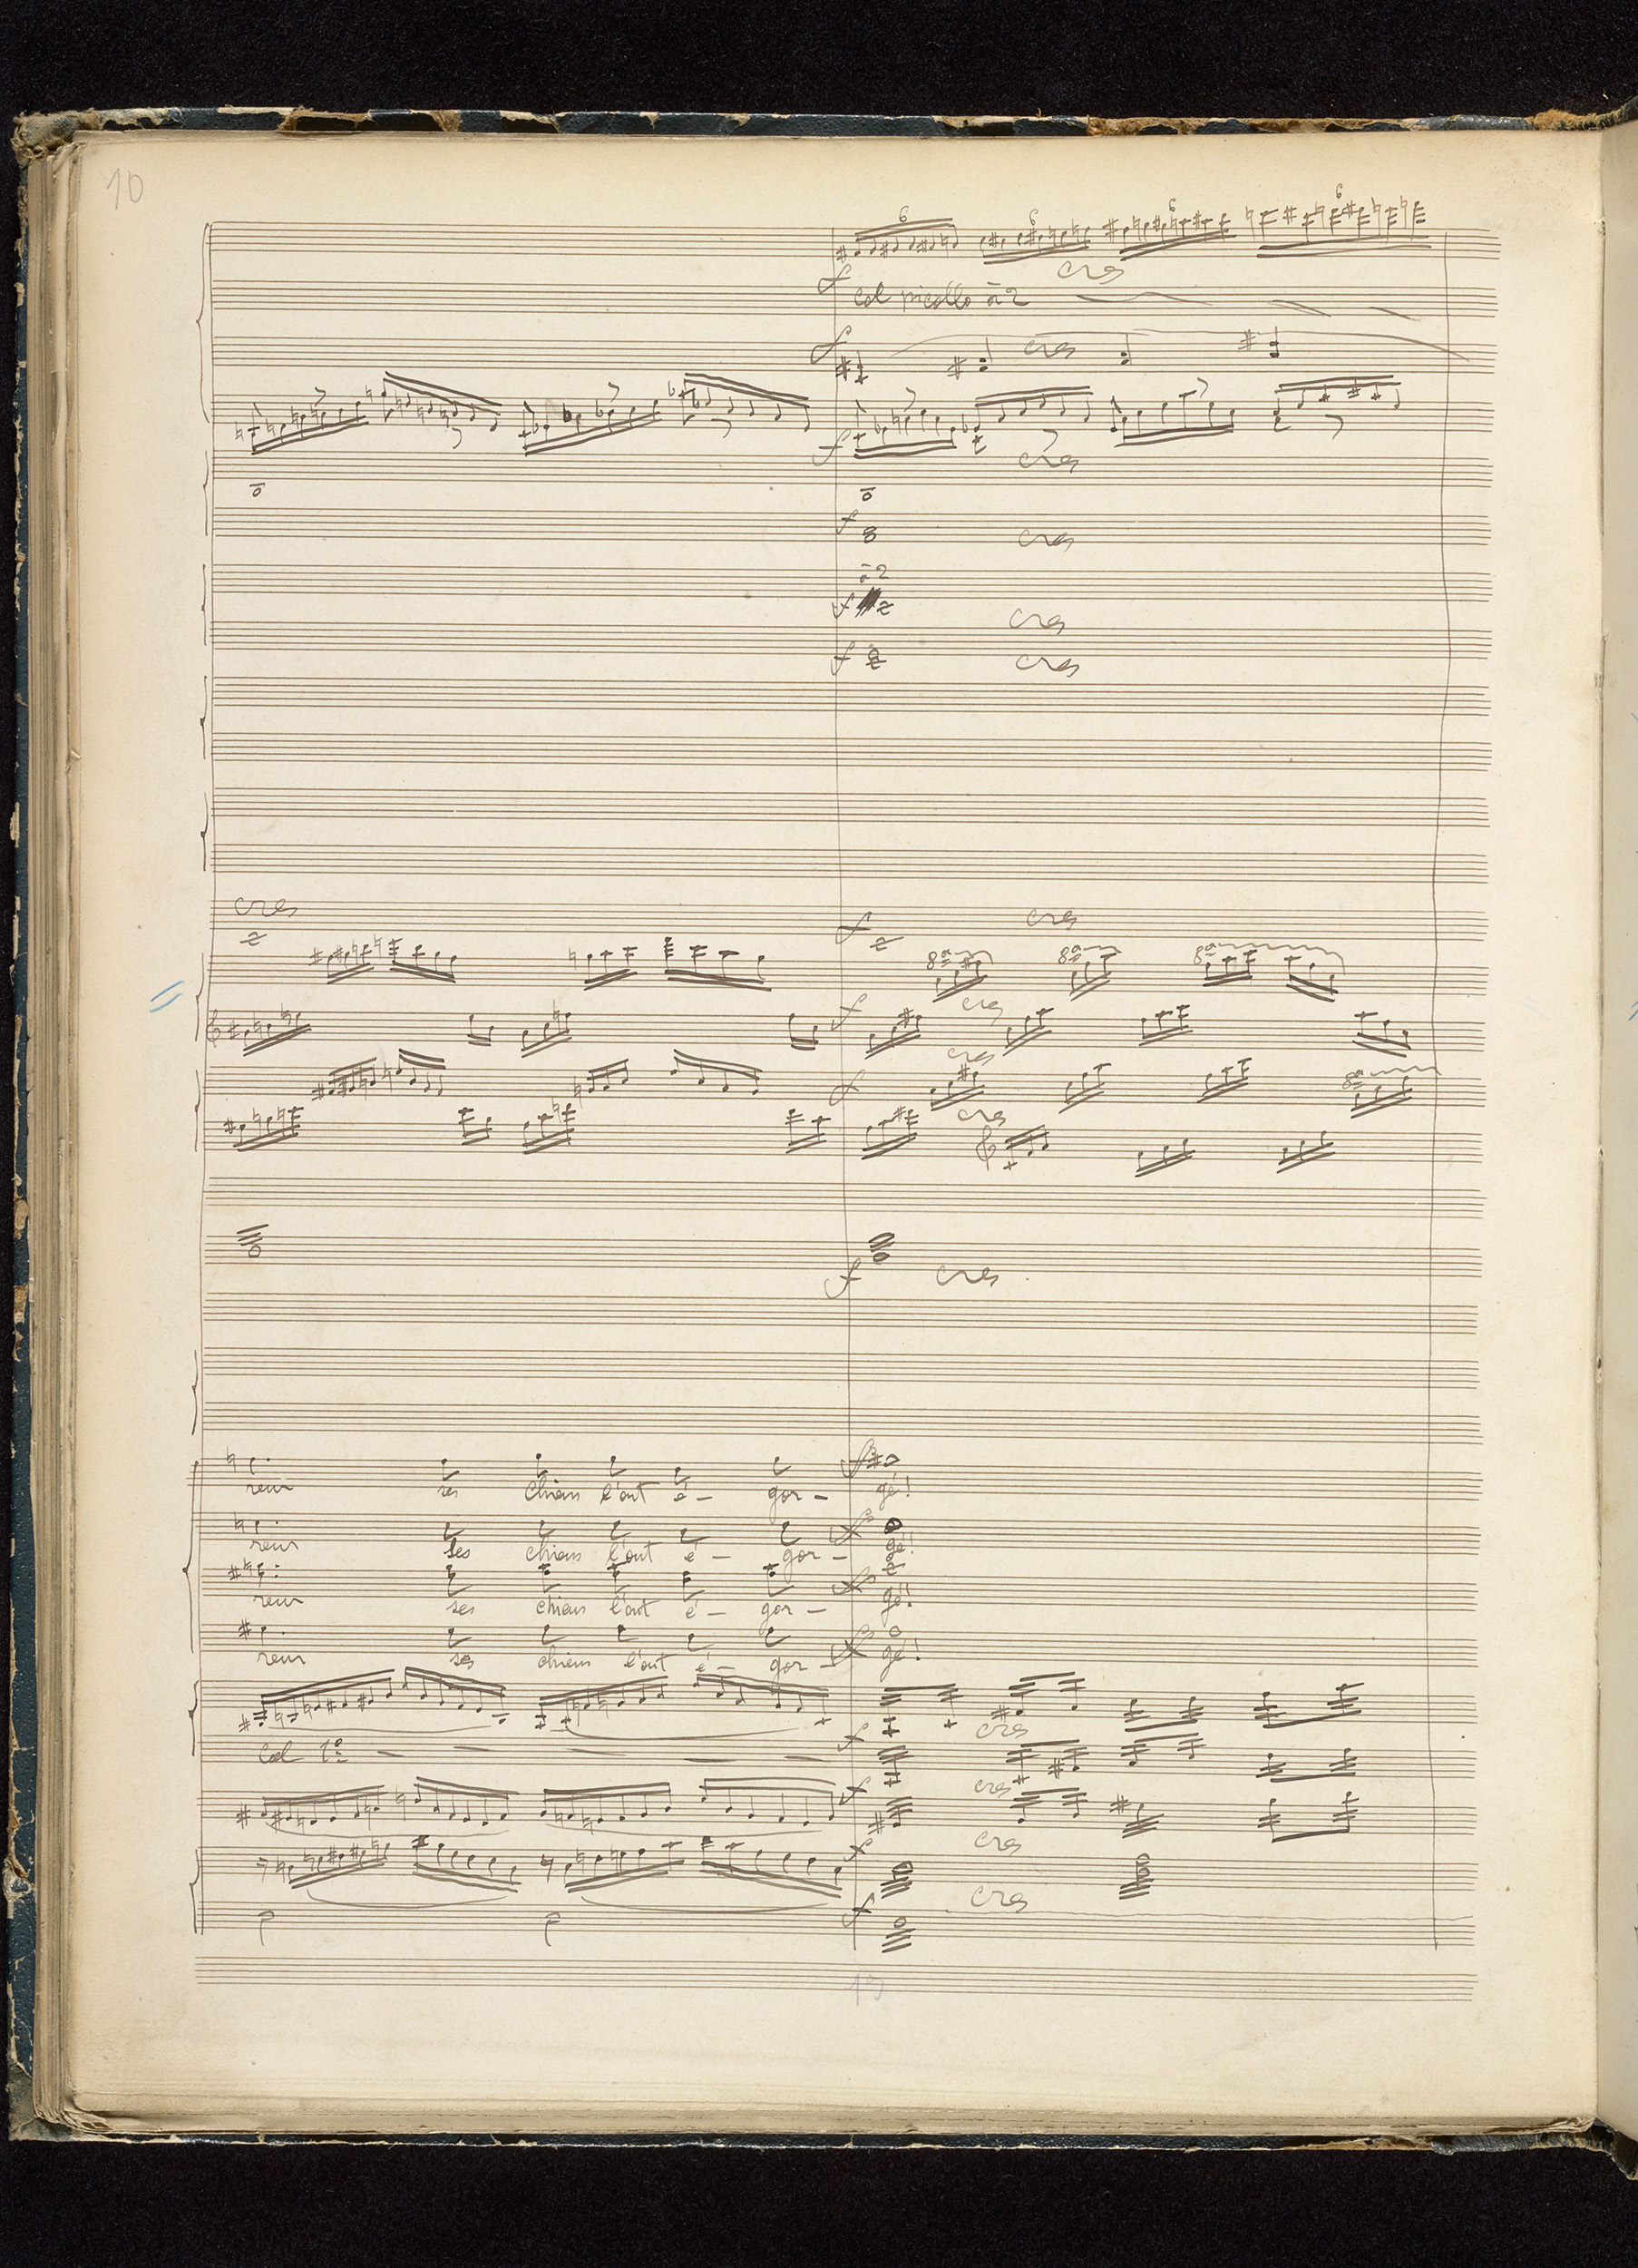 10
6 6 6 6
f cres
col picollo à 2
f cres
f cres
f cres
à 2
f cres
f cres
cres f cres
8ª 8ª 8ª
f cres
f cres
8ª
cres
f cres
f
reur ses chiens l'ont é- gor- gé!
f
reur ses chiens l'ont é- gor- gé!
f
reur ses chiens l'ont é- gor- gé!
f
reur ses chiens l'ont é- gor- gé!
f cres
col 1º
f cres
f cres
f cres
19